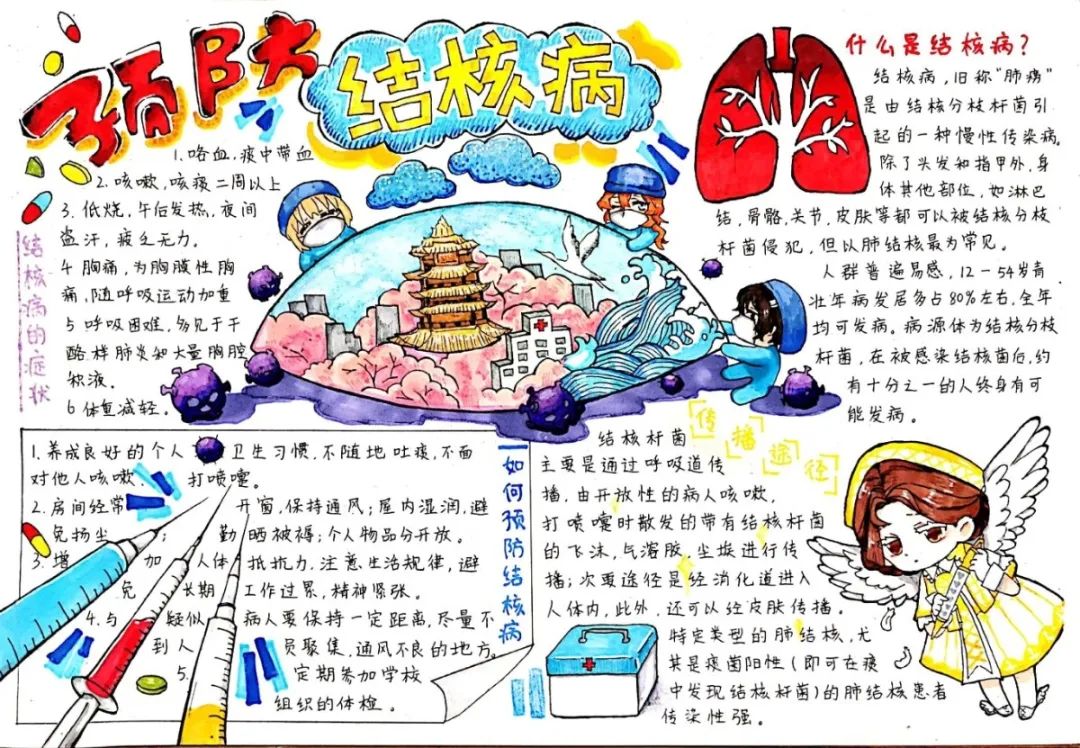 预防
结核病
结核病的症状
1.咯血,痰中带血
2.咳嗽,咳痰二周以上
3.低烧,午后发热,夜间
盗汗,疲乏无力。
4胸痛,为胸膜性胸
痛,随呼吸运动加重
5呼吸困难,多见于干
酪样肺炎和大量胸腔
积液。
6体重减轻。
什么是结核病?
结核病,旧称“肺痨”
是由结核分枝杆菌引
起的一种慢性传染病。
除了头发和指甲外,身
体其他部位,如淋巴
结,骨骼,关节,皮肤等都可以被结核分枝
杆菌侵犯,但以肺结核最为常见。
人群普遍易感,12-54岁青
壮年病发居多占80%左右,全年
均可发病。病源体为结核分枝
杆菌,在被感染结核菌后,约
有十分之一的人终身有可
能发病。
如何预防结核病
1.养成良好的个人卫生习惯,不随地吐痰,不面
对他人咳嗽、打喷嚏。
2.房间经常开窗,保持通风;屋内湿润,避
免扬尘;勤晒被褥;个人物品分开放。
3.增加人体抵抗力,注意生活规律,避
免长期工作过累,精神紧张。
4.与疑似病人要保持一定距离,尽量不
到人员聚集,通风不良的地方。
5.定期参加学校
组织的体检。
传播途径
结核杆菌
主要是通过呼吸道传
播,由开放性的病人咳嗽,
打喷嚏时散发的带有结核杆菌
的飞沫,气溶胶,尘埃进行传
播;次要途径是经消化道进入
人体内,此外,还可以经皮肤传播。
特定类型的肺结核,尤
其是痰菌阳性(即可在痰
中发现结核杆菌)的肺结核患者
传染性强。